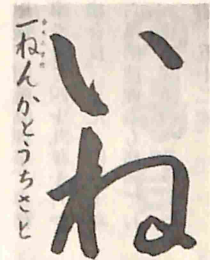 いね
一ねんかとうちさと